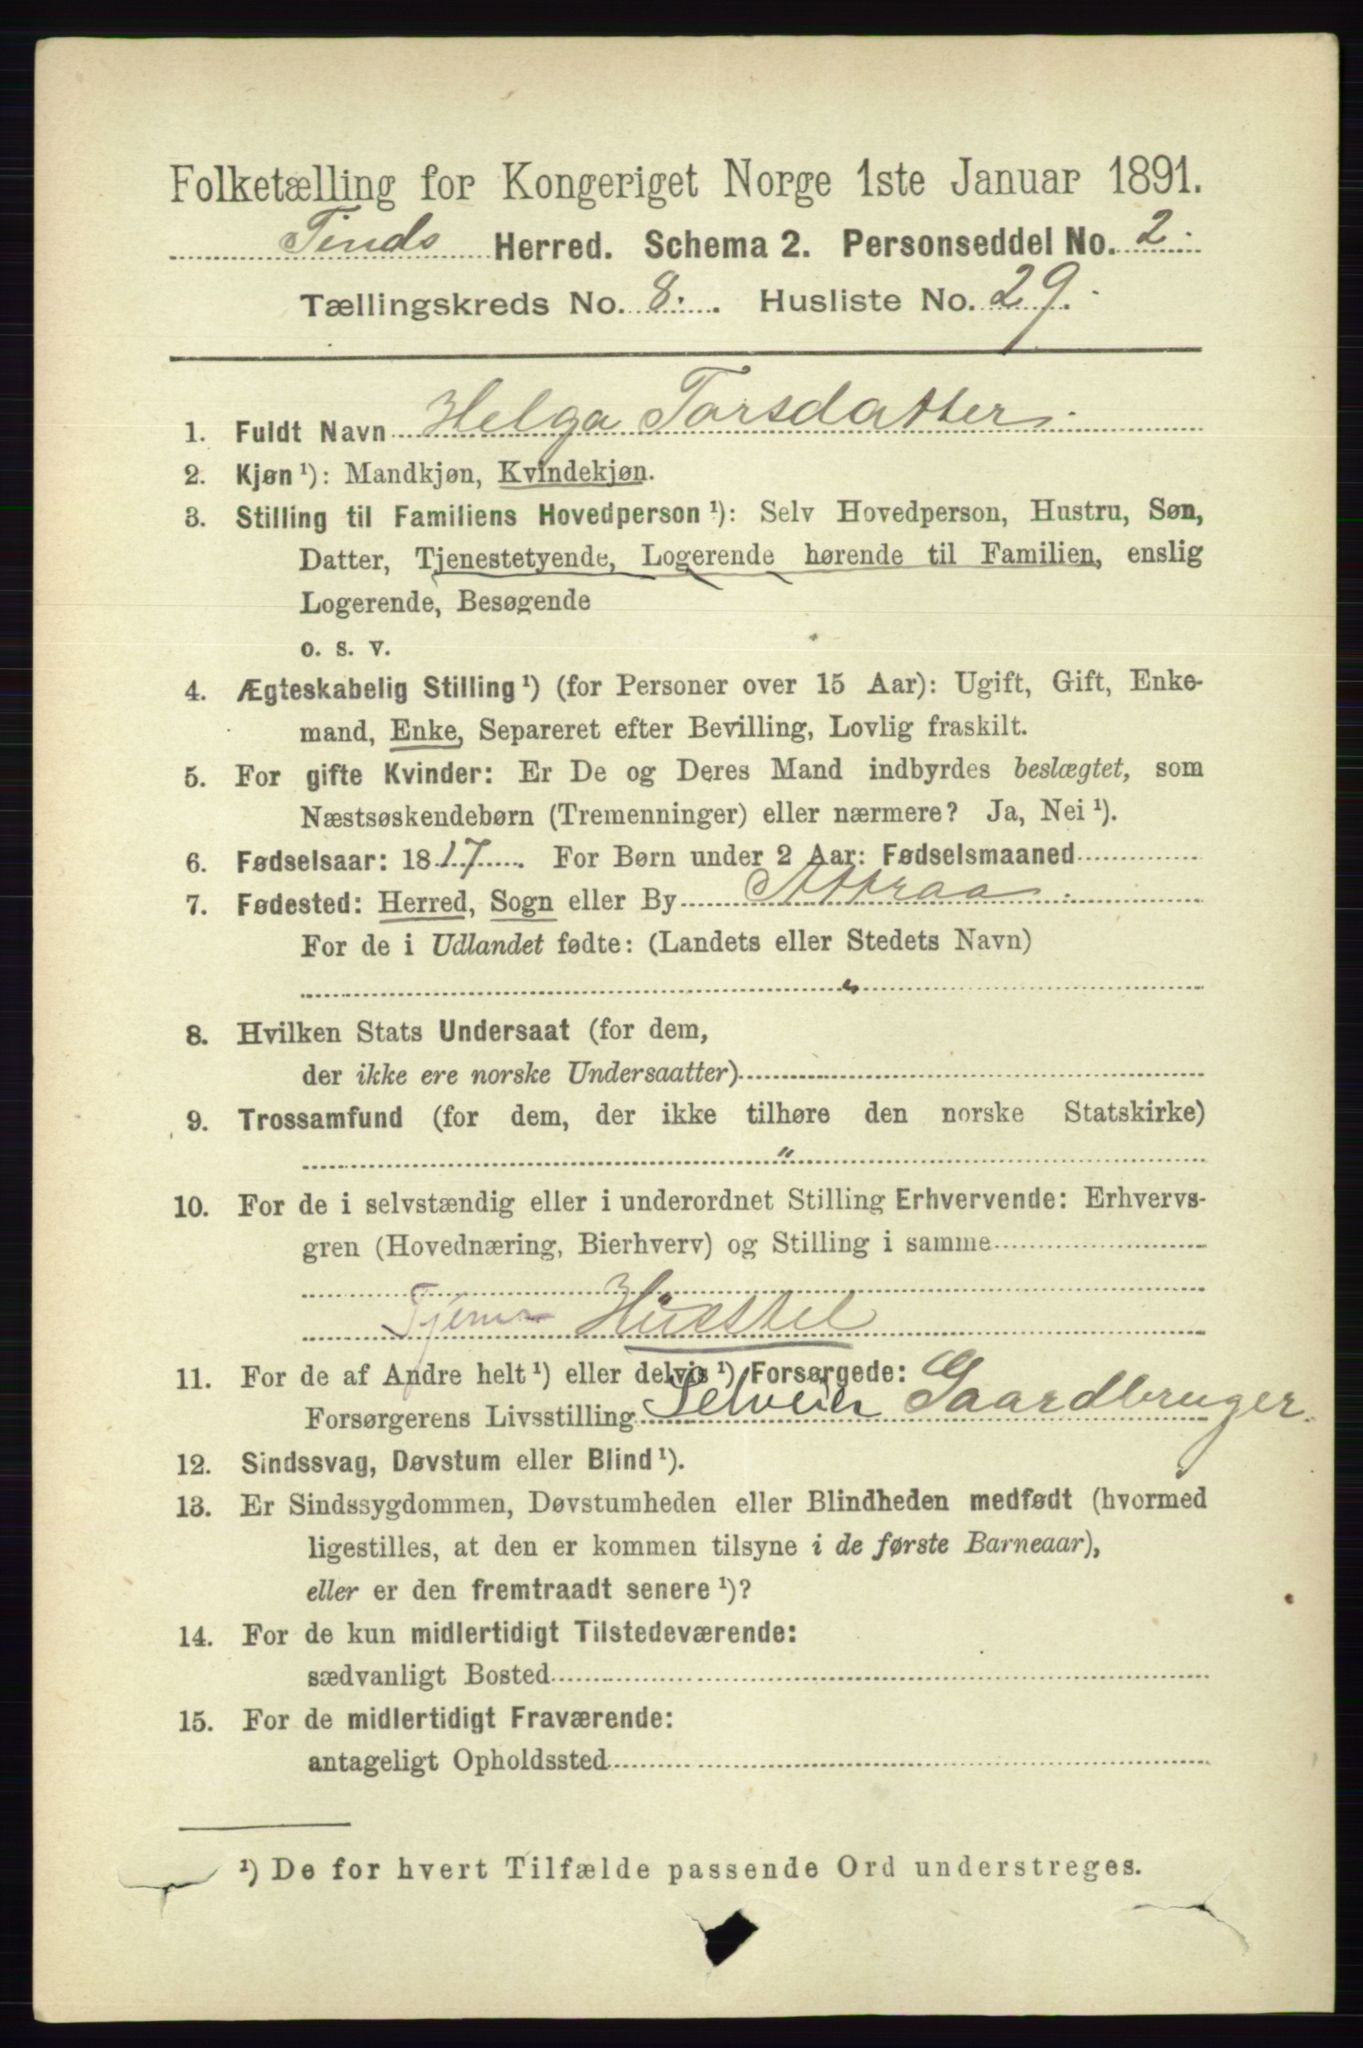 Folketælling for Kongeriget Norge 1ste Januar 1891.
Tinds Herred. Schema 2. Personseddel No. 2.
Tællingskreds No. 8. Husliste No. 29.
1. Fuldt Navn Helga Torsdatter.
2. Kjøn ¹): Mandkjøn, Kvindekjøn.
3. Stilling til Familiens Hovedperson ¹): Selv Hovedperson, Hustru, Søn,
Datter, Tjenestetyende, Logerende hørende til Familien, enslig
Logerende, Besøgende
o. s. v.
4. Ægteskabelig Stilling ¹) (for Personer over 15 Aar): Ugift, Gift, Enke-
mand, Enke, Separeret efter Bevilling, Lovlig fraskilt.
5. For gifte Kvinder: Er De og Deres Mand indbyrdes beslægtet, som
Næstsøskendebørn (Tremenninger) eller nærmere? Ja, Nei ¹).
6. Fødselsaar: 1817. For Børn under 2 Aar: Fødselsmaaned
7. Fødested: Herred, Sogn eller By Attraa.
For de i Udlandet fødte: (Landets eller Stedets Navn)
"
8. Hvilken Stats Undersaat (for dem,
der ikke ere norske Undersaatter)
9. Trossamfund (for dem, der ikke tilhøre den norske Statskirke)
"
10. For de i selvstændig eller i underordnet Stilling Erhvervende: Erhvervs-
gren (Hovednæring, Bierhverv) og Stilling i samme
Husstel
11. For de af Andre helt ¹) eller delvis ¹) Forsørgede:
Forsørgerens Livsstilling Selveier Gaardbruger.
12. Sindssvag, Døvstum eller Blind ¹).
13. Er Sindssygdommen, Døvstumheden eller Blindheden medfødt (hvormed
ligestilles, at den er kommen tilsyne i de første Barneaar),
eller er den fremtraadt senere ¹)?
14. For de kun midlertidigt Tilstedeværende:
sædvanligt Bosted
15. For de midlertidigt Fraværende:
antageligt Opholdssted
¹) De for hvert Tilfælde passende Ord understreges.